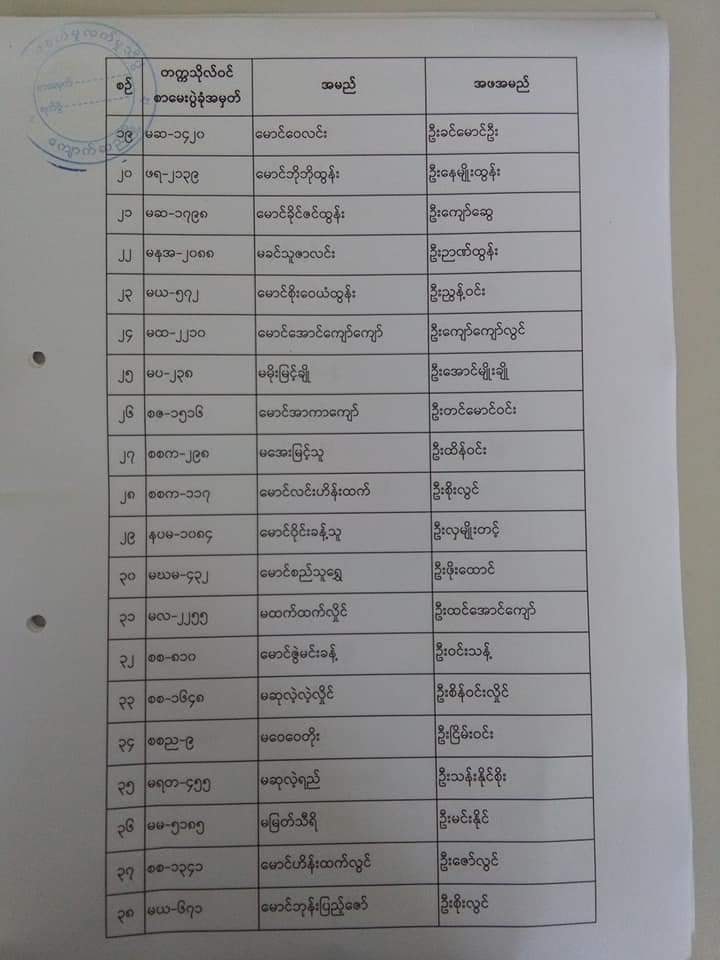 စဉ် တက္ကသိုလ်ဝင် စာမေးပွဲခုံအမှတ် အမည် အဖအမည်
၁၉ မဆ-၁၄၂၀ မောင်ဝေလင်း ဦးခင်မောင်ဦး
၂၀ ဖရ-၂၁၃၉ မောင်ဘိုဘိုထွန်း ဦးနေမျိုးထွန်း
၂၁ မဆ-၁၇၉၈ မောင်ခိုင်ဇင်ထွန်း ဦးကျော်ဆွေ
၂၂ မနအ-၂၀၈၈ မခင်သူဇာလင်း ဦးဉာဏ်ထွန်း
၂၃ မယ-၅၇၂ မောင်စိုးဝေယံထွန်း ဦးညွန့်ဝင်း
၂၄ မထ-၂၂၁၀ မောင်အောင်ကျော်ကျော် ဦးကျော်ကျော်လွင်
၂၅ မပ-၂၃၈ မမိုးမြင့်ချို ဦးအောင်မျိုးချို
၂၆ စဇ-၁၅၁၆ မောင်အာကာကျော် ဦးတင်မောင်ဝင်း
၂၇ စစက-၂၉၈ မအေးမြင့်သူ ဦးထိန်ဝင်း
၂၈ စစက-၁၁၇ မောင်လင်းဟိန်းထက် ဦးစိုးလွင်
၂၉ နပမ-၁၀၈၄ မောင်ဝိုင်းခန့်သူ ဦးလှမျိုးတင့်
၃၀ မဃမ-၄၃၂ မောင်စည်သူရွှေ ဦးဖိုးထောင်
၃၁ မလ-၂၂၅၅ မထက်ထက်လှိုင် ဦးထင်အောင်ကျော်
၃၂ စစ-၈၁၀ မောင်ဇွဲမင်းခန့် ဦးဝင်းသန့်
၃၃ စစ-၁၆၄၈ မဆုလဲ့လဲ့လှိုင် ဦးစိန်ဝင်းလှိုင်
၃၄ စစည-၉ မဝေဝေတိုး ဦးငြိမ်းဝင်း
၃၅ မရတ-၄၅၅ မဆုလဲ့ရည် ဦးသန်းနိုင်စိုး
၃၆ မမ-၅၁၈၅ မမြတ်သီရိ ဦးမင်းနိုင်
၃၇ စစ-၁၃၄၁ မောင်ဟိန်းထက်လွင် ဦးဇော်လွင်
၃၈ မယ-၆၇၁ မောင်ဘုန်းပြည့်ဇော် ဦးစိုးလွင်